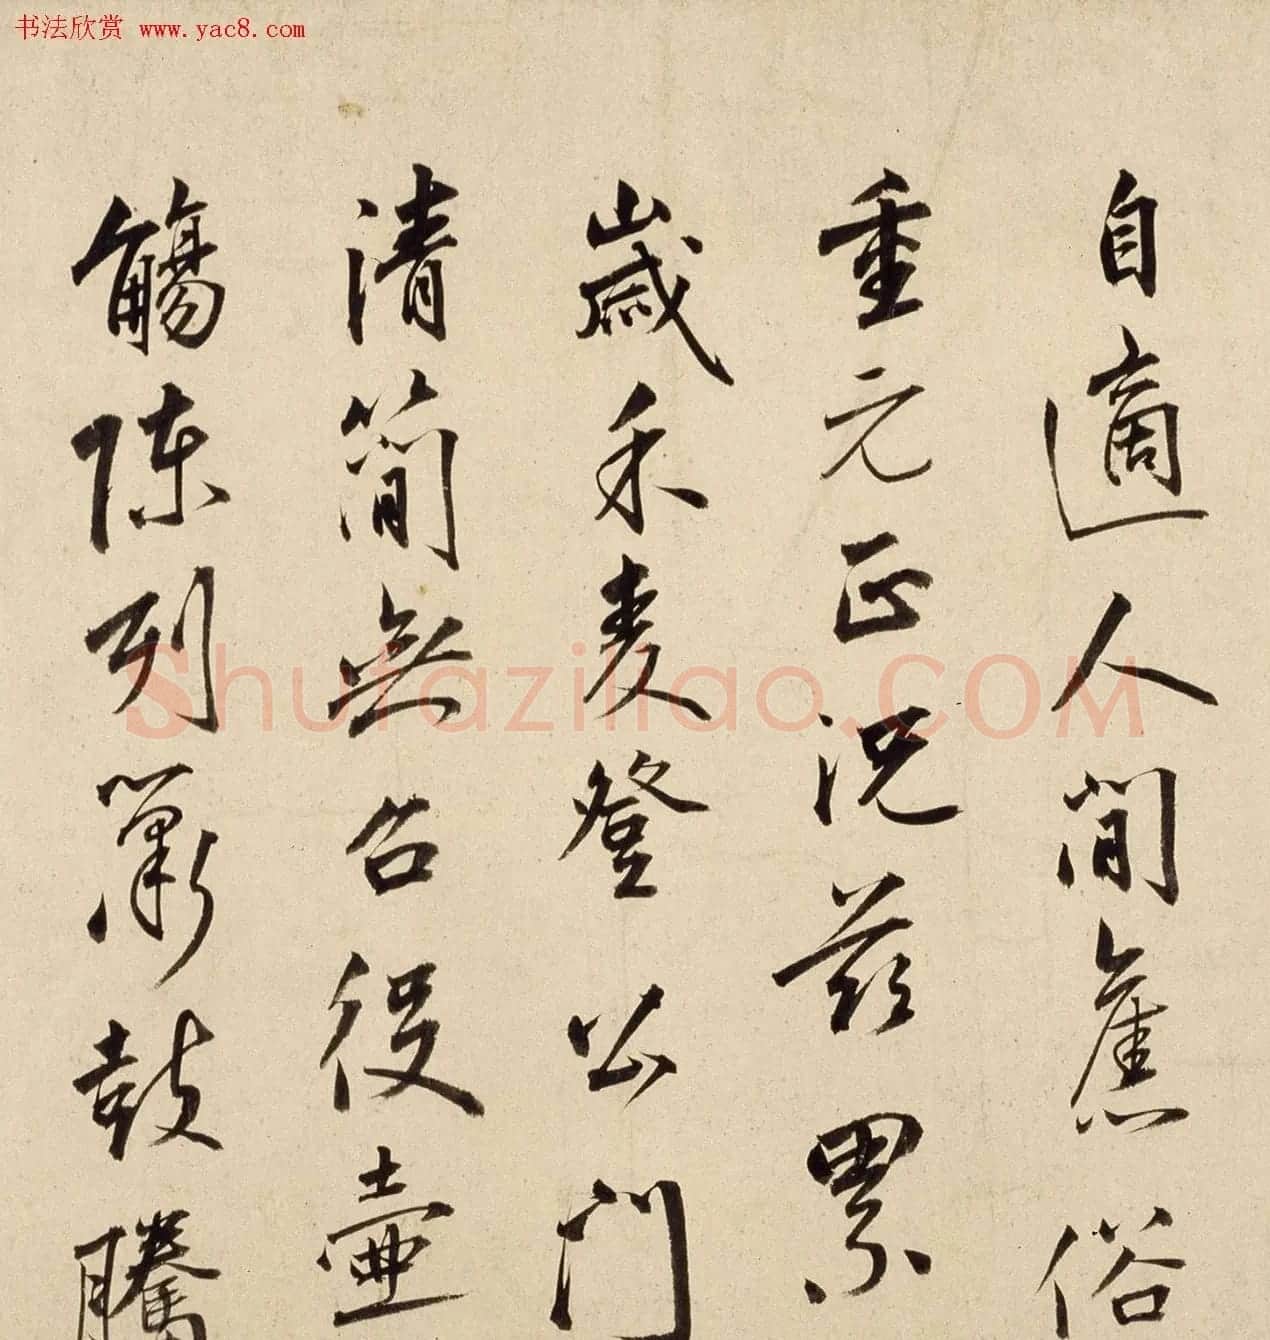 书法欣赏 www.yac8.com
自適人間舊俗
重元正況茲累
歲禾麦登公門
清簡無召役壺
觴陳列簫鼓騰
Shufaziliao.COM